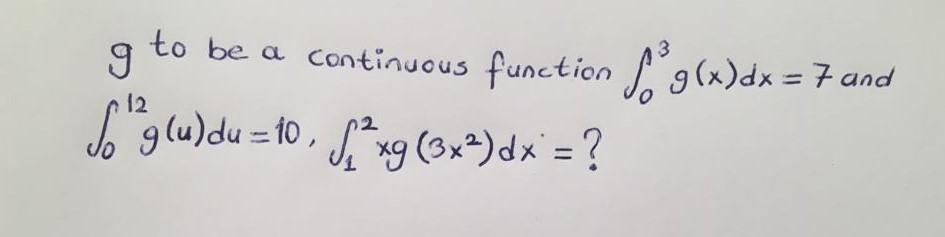 g to be a continuous function ∫₀³ g(x)dx = 7 and
∫₀¹² g(u)du = 10, ∫₁² xg(3x²)dx = ?